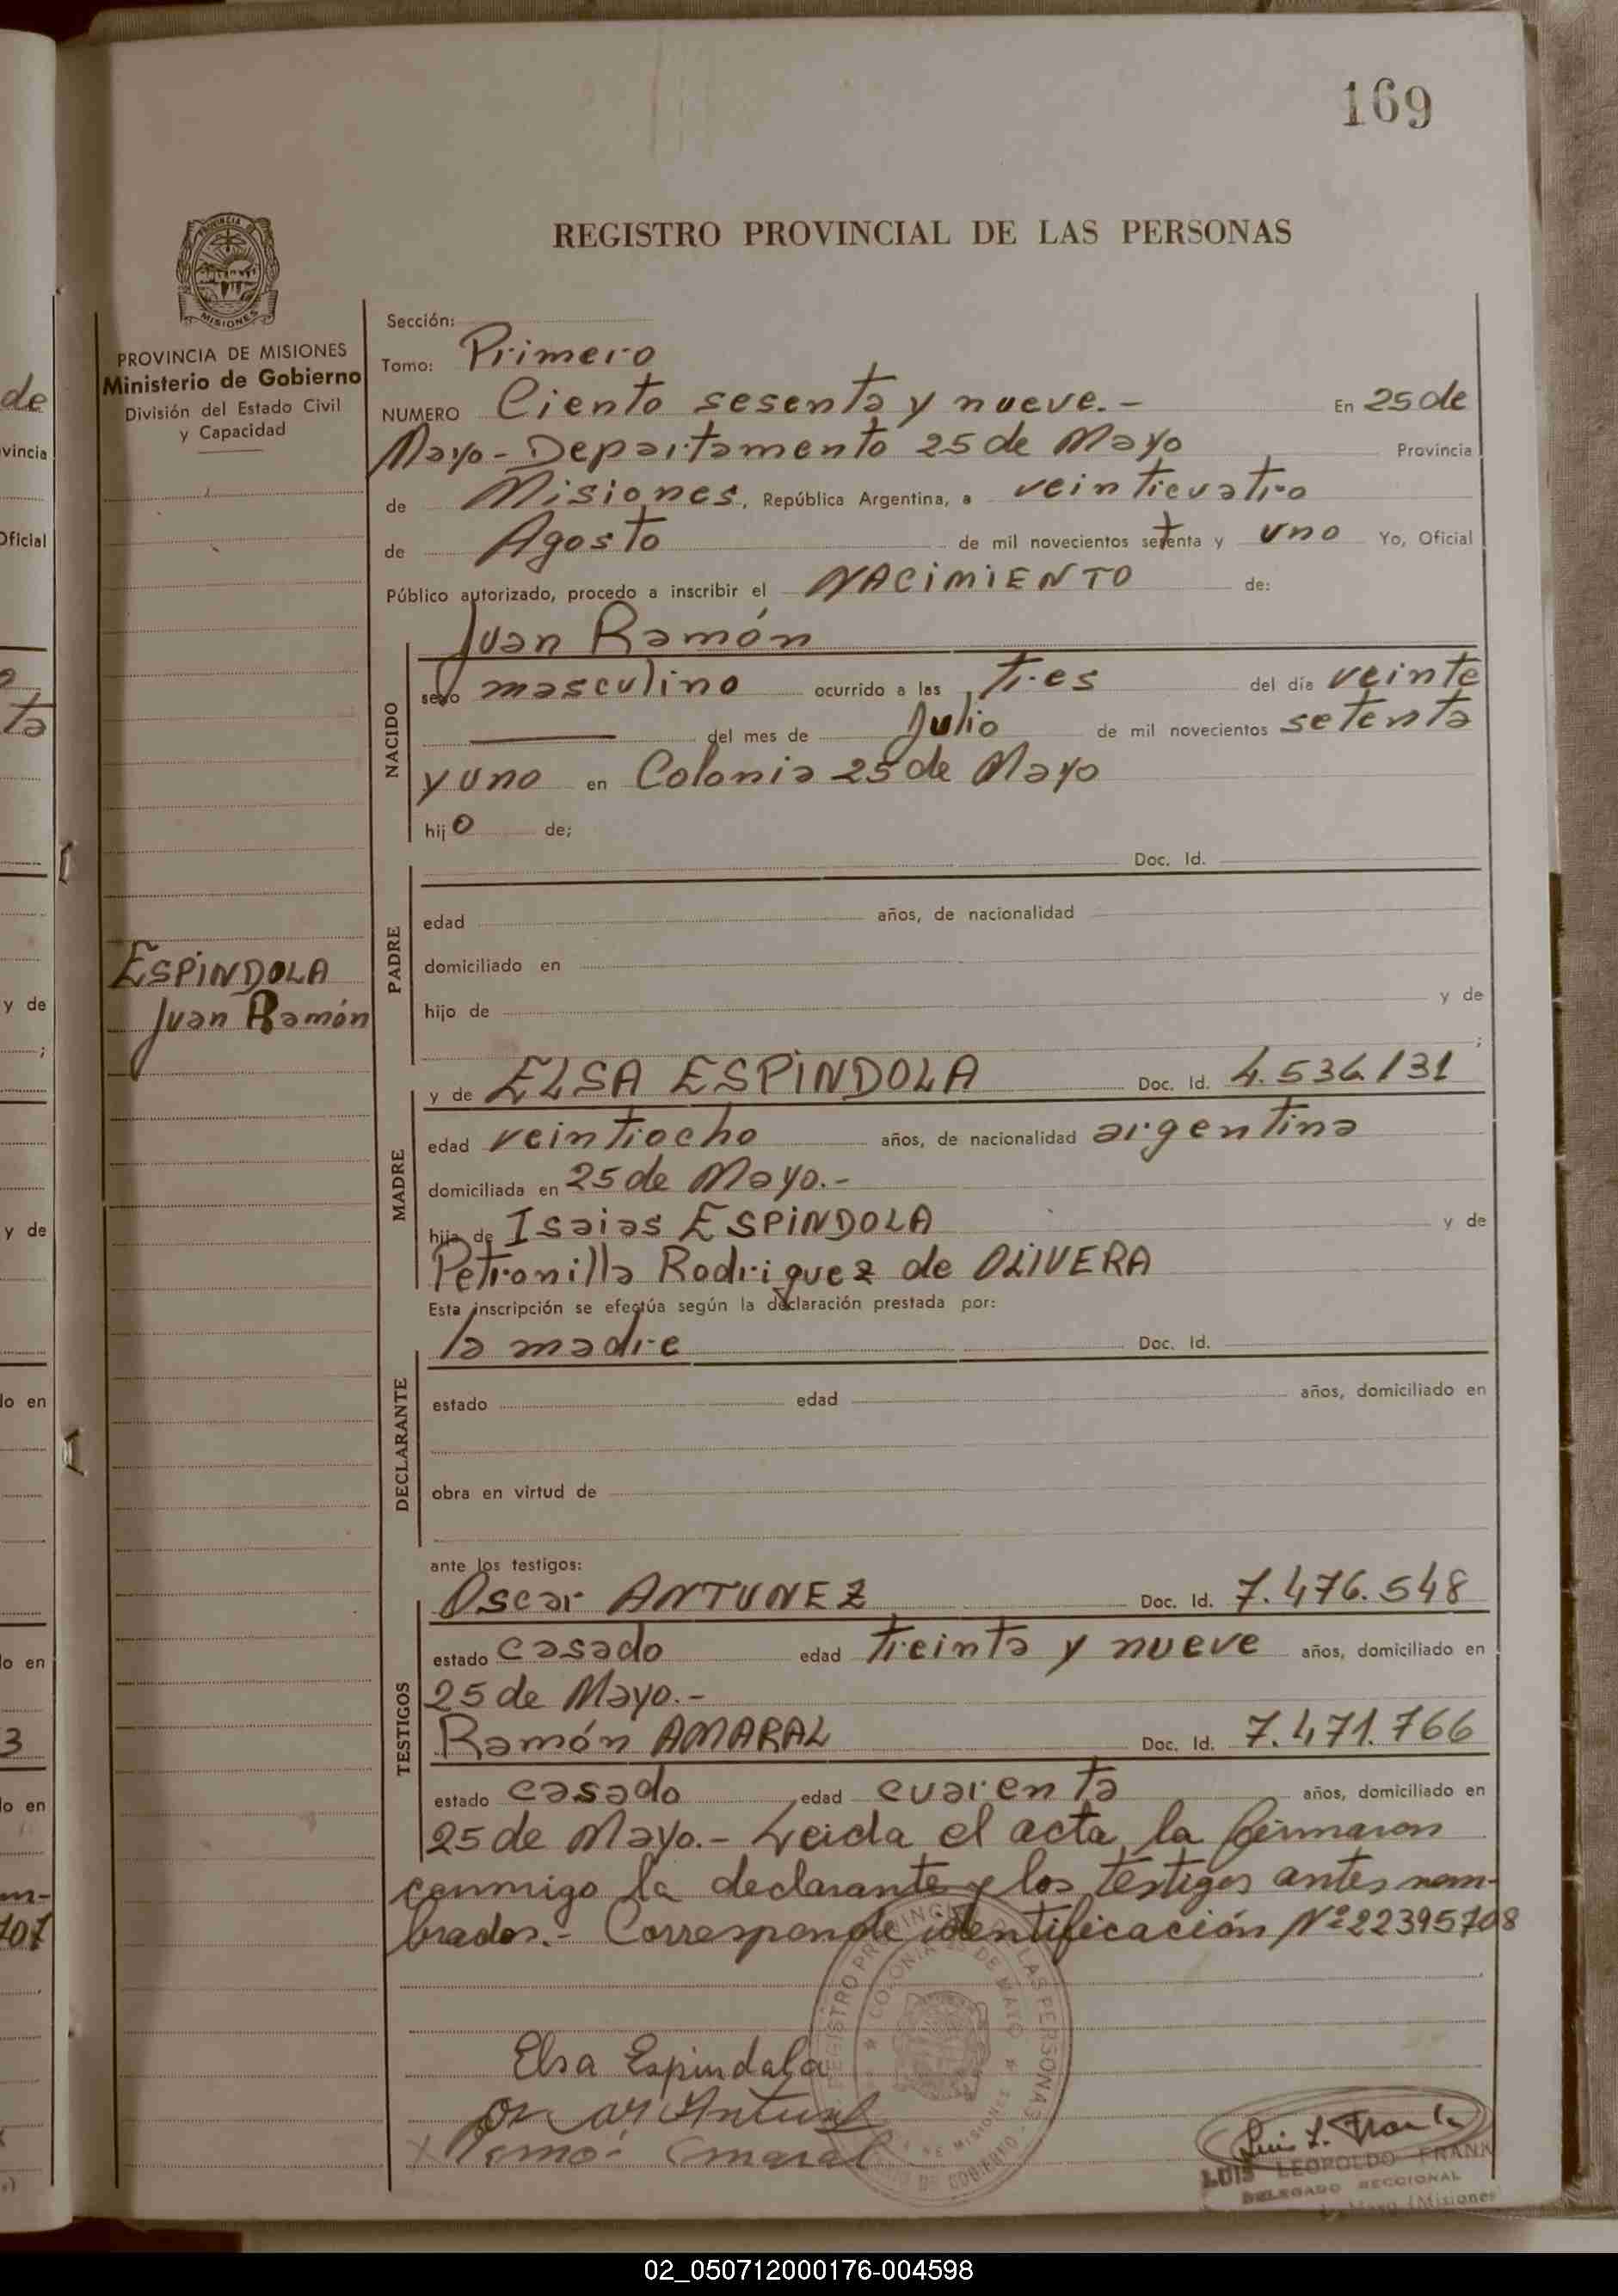 169
REGISTRO PROVINCIAL DE LAS PERSONAS
PROVINCIA DE MISIONES
Ministerio de Gobierno
División del Estado Civil
y Capacidad
Sección:
Tomo: Primero
NUMERO Ciento sesenta y nueve.- En 25 de
Mayo - Departamento 25 de Mayo Provincia
de Misiones, República Argentina, a veinticuatro
de Agosto de mil novecientos setenta y uno Yo, Oficial
Público autorizado, procedo a inscribir el NACIMIENTO de:
Juan Ramón
NACIDO
sexo masculino ocurrido a las tres del día veinte
del mes de Julio de mil novecientos setenta
y uno en Colonia 25 de Mayo
hijo de;
PADRE
Doc. Id.
edad años, de nacionalidad
domiciliado en
hijo de y de
;
ESPINDOLA
Juan Ramón
MADRE
y de ELSA ESPINDOLA Doc. Id. 4.536.131
edad veintiocho años, de nacionalidad argentina
domiciliada en 25 de Mayo.-
hija de Isaias ESPINDOLA y de
Petronilla Rodriguez de OLIVERA
Esta inscripción se efectúa según la declaración prestada por:
DECLARANTE
la madre Doc. Id.
estado edad años, domiciliado en
obra en virtud de
ante los testigos:
TESTIGOS
Oscar ANTUNEZ Doc. Id. 7.476.548
estado casado edad treinta y nueve años, domiciliado en
25 de Mayo.-
Ramón AMARAL Doc. Id. 7.471.766
estado casado edad cuarenta años, domiciliado en
25 de Mayo.- Leida el acta, la firmaron
conmigo la declarante y los testigos antes nom-
brados.- Corresponde identificación Nº 22395708
Elsa Espindola
Luis L. Frank
LUIS LEOPOLDO FRANK
DELEGADO SECCIONAL
02_050712000176-004598